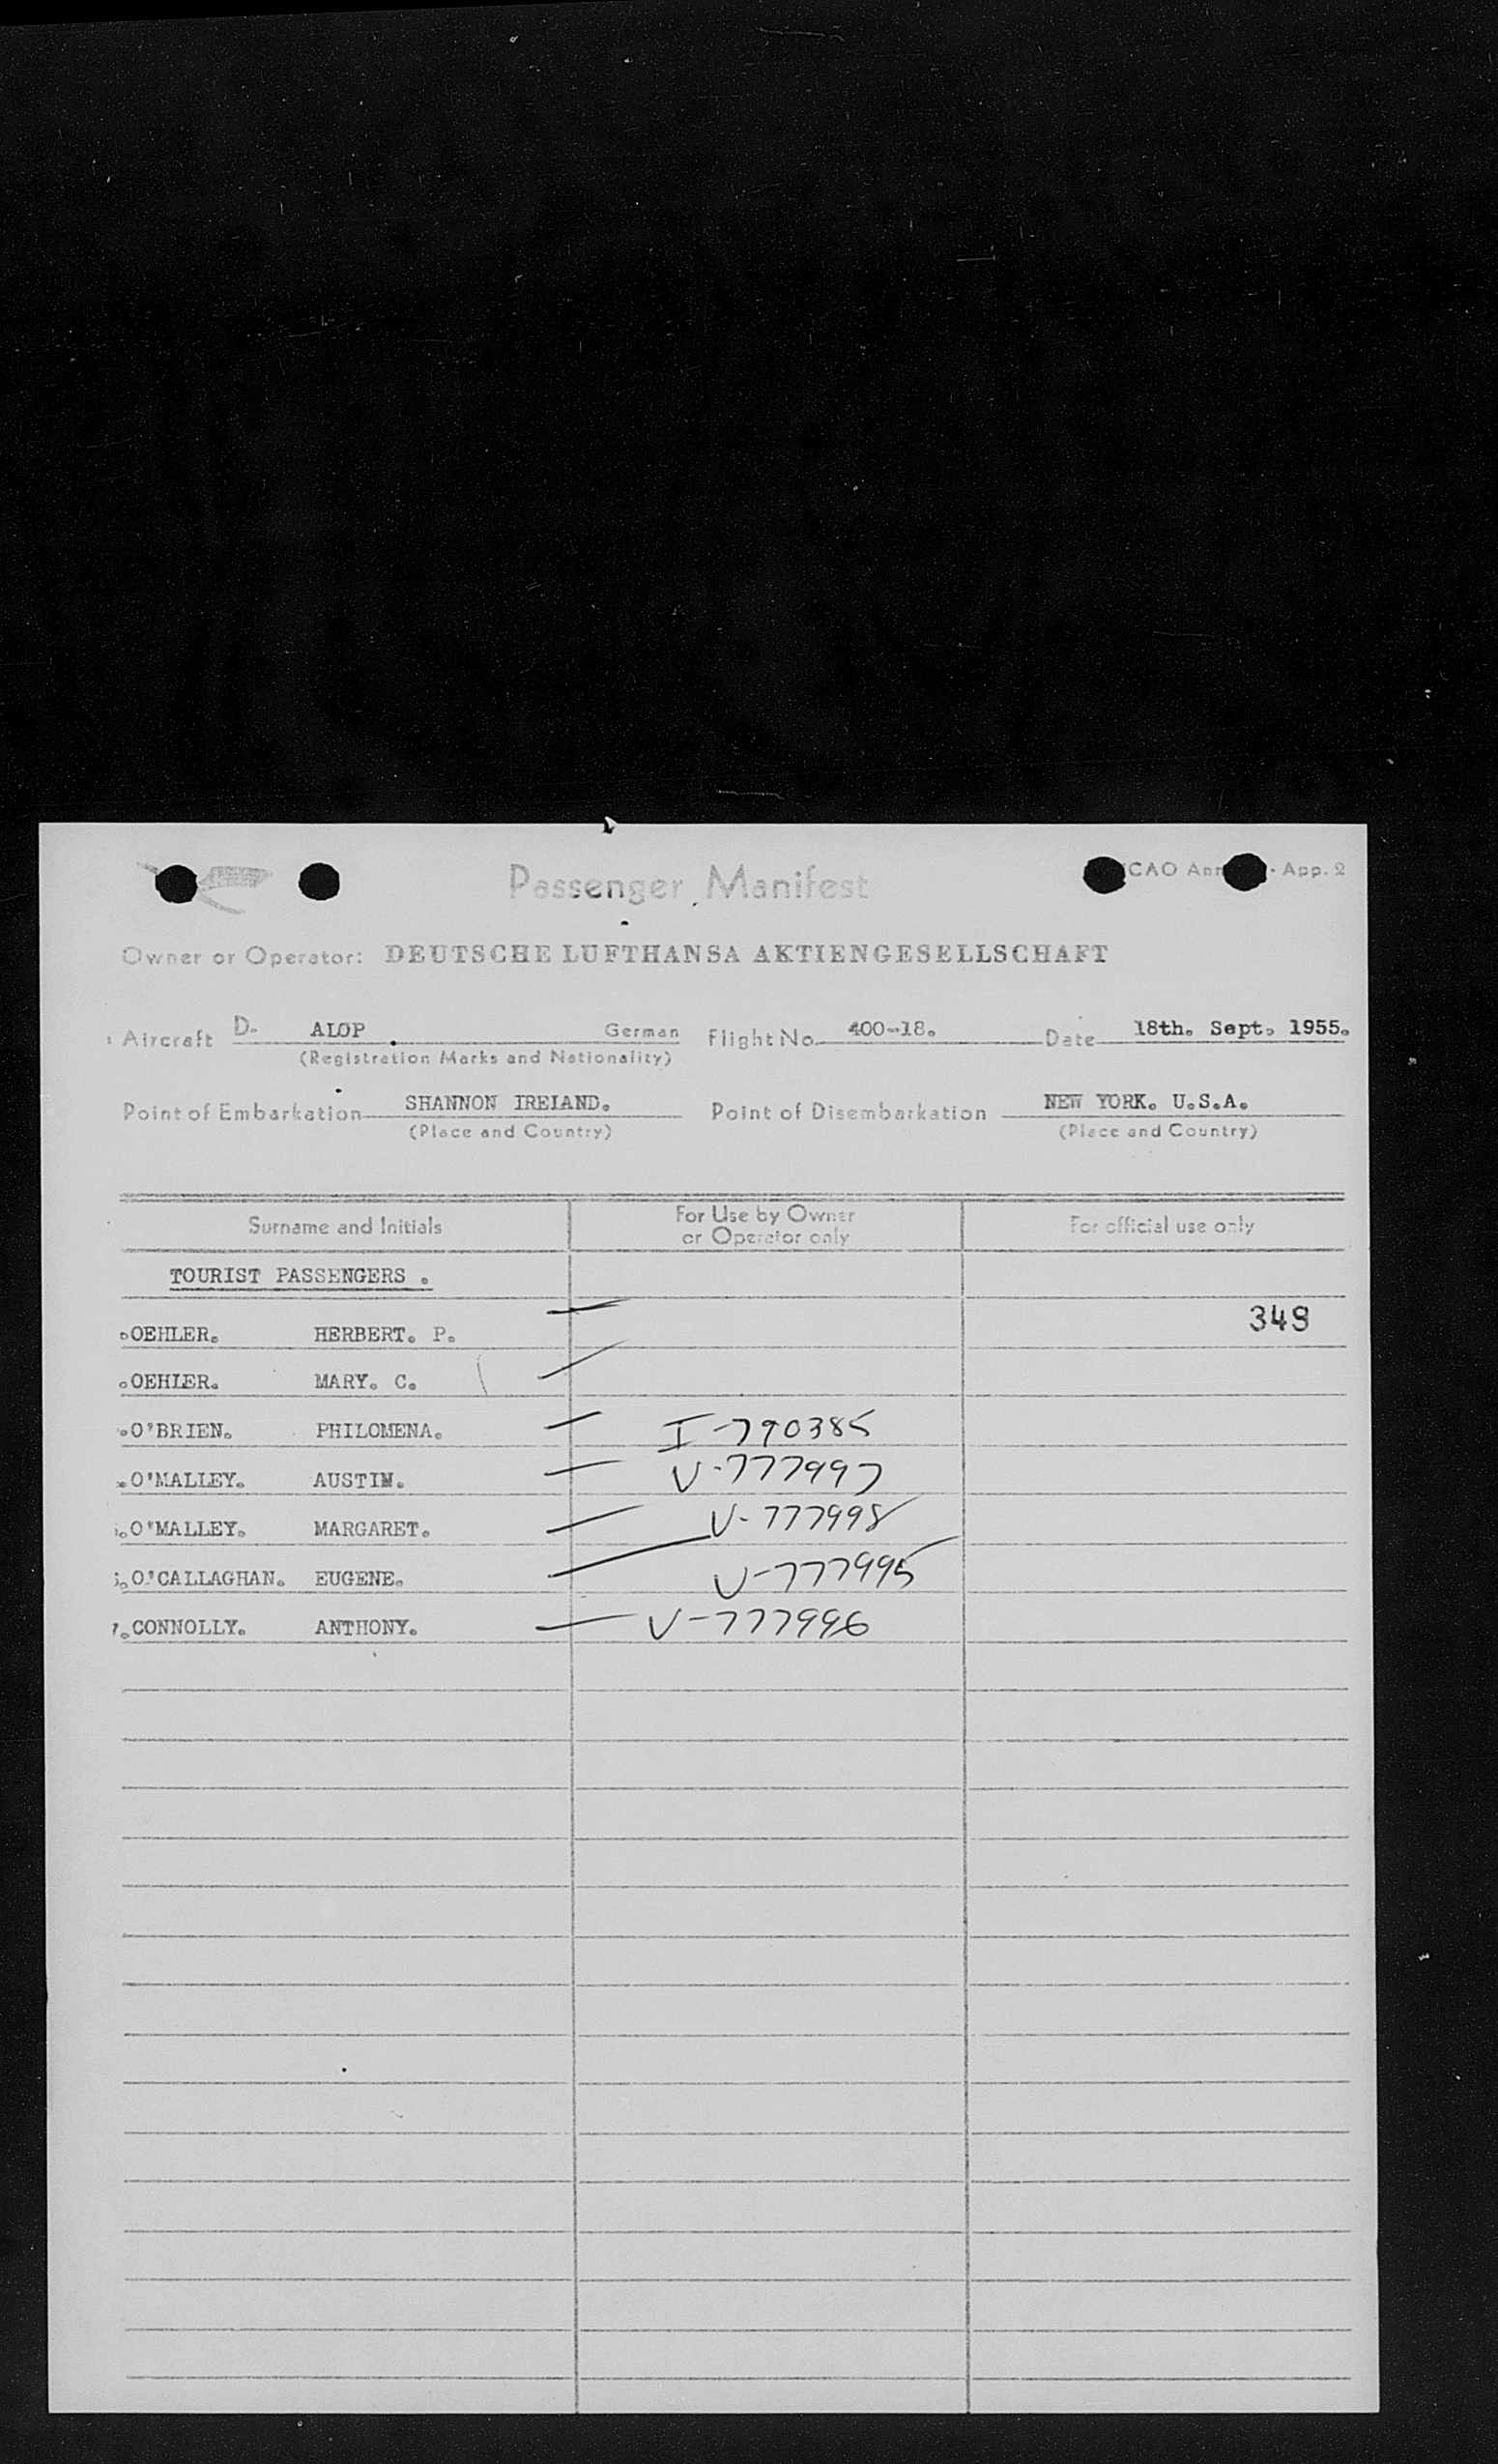 Passenger Manifest
ICAO Ann - App. 2
Owner or Operator: DEUTSCHE LUFTHANSA AKTIENGESELLSCHAFT
Aircraft D. ALOP. German Flight No. 400-18. Date 18th. Sept. 1955.
(Registration Marks and Nationality)
Point of Embarkation SHANNON IRELAND. Point of Disembarkation NEW YORK. U.S.A.
(Place and Country) (Place and Country)
Surname and Initials For Use by Owner or Operator only For official use only
TOURIST PASSENGERS .
OEHLER. HERBERT. P. 349
OEHLER. MARY. C.
O'BRIEN. PHILOMENA. I-790385
O'MALLEY. AUSTIN. V-777997
O'MALLEY. MARGARET. V-777998
O'CALLAGHAN. EUGENE. V-777995
7. CONNOLLY. ANTHONY. V-777996